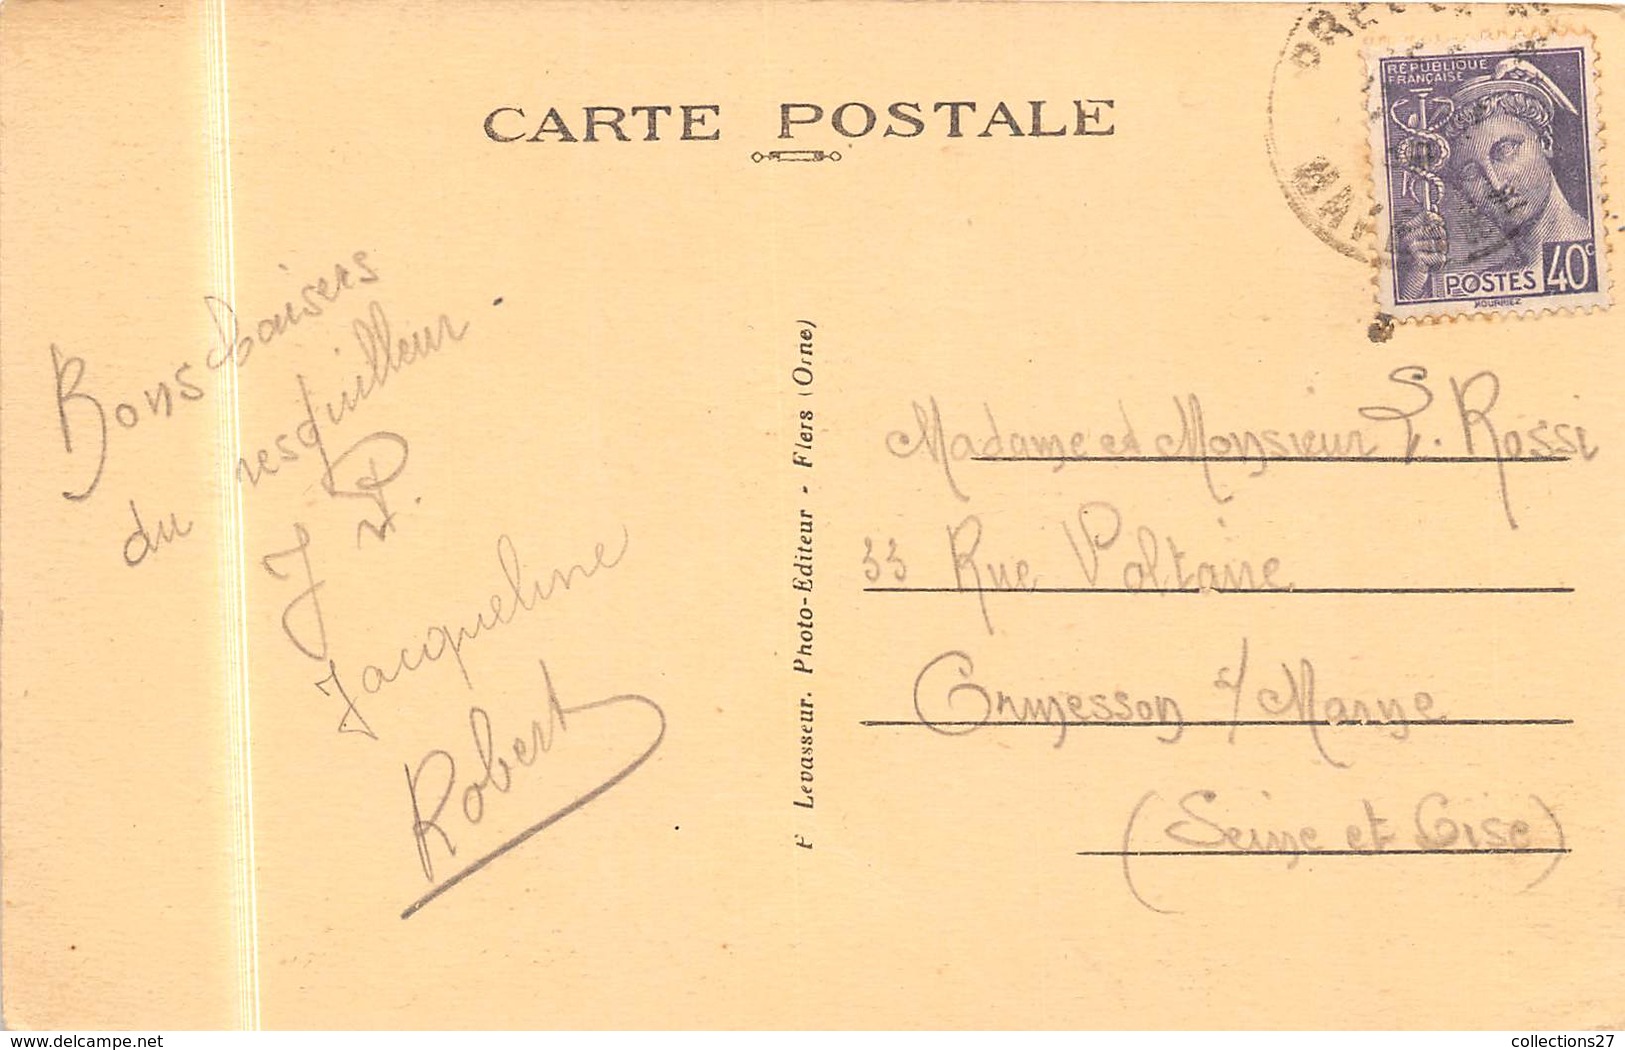 CARTE POSTALE
RÉPUBLIQUE
FRANÇAISE
POSTES 40c
MOURRIEZ
Bons baisers
du resquilleur
J P.
Jacqueline
Robert
Levasseur. Photo-Editeur - Flers (Orne)
Madame et Monsieur Rossi
33 Rue Voltaire
Ormesson s/ Marne
(Seine et Oise)
delcampe.net
collections27